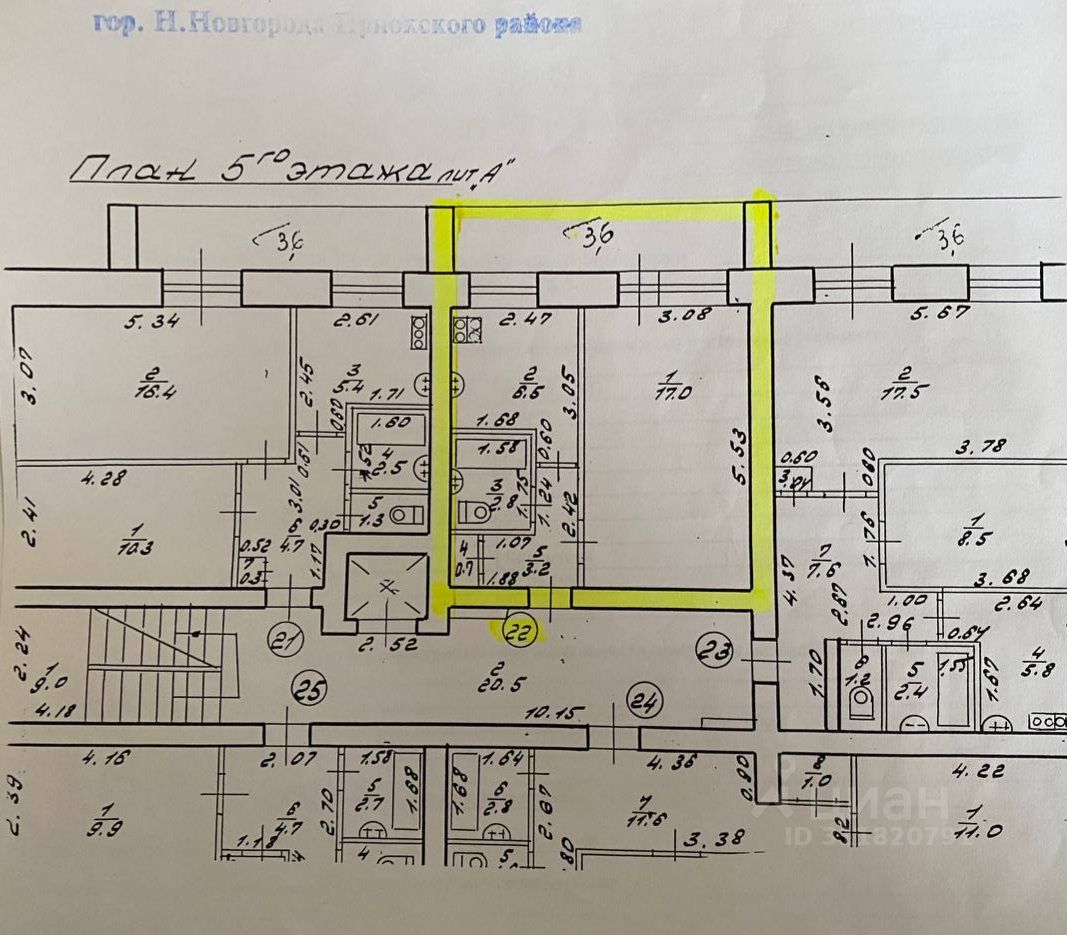 гор. Н.Новгорода Приокского района
План 5го этажа лит. „А"
3,6 3,6 3,6
5.34 2.61 2.47 3.08 5.67
3.07 2/16.4 2.45 3/5.4 1.71 2/6.5 3.05 1/17.0 3.56 2/17.5
0.80 1.60 1.68 0.60 5.53 0.60 0.80 3.78
4.28 0.61 4/2.5 1.58
2.41 1/10.3 3.01 5/1.3 3/2.8 1.75 1.24 2.42 1.76 1/8.5
0.52 6/4.7 0.30 1.17 4/0.7 1.07 5/3.2 1.88 4.37 7/7.6 3.68
7/0.3 2.87 1.00 2.64
2.24 21 2.52 22 23 2.96 0.64
1/9.0 25 2/20.5 24 1.70 8/1.2 5/2.4 1.55 1.67 4/5.8
4.18 10.15
4.16 2.07 1.58 1.64 4.36 0.80 8/1.0 4.22
2.39 1/9.9 6/4.7 2.70 5/2.7 1.68 1.68 6/2.8 2.67 7/11.6 1/11.0
1.18 3.38
4 5 .80
циан